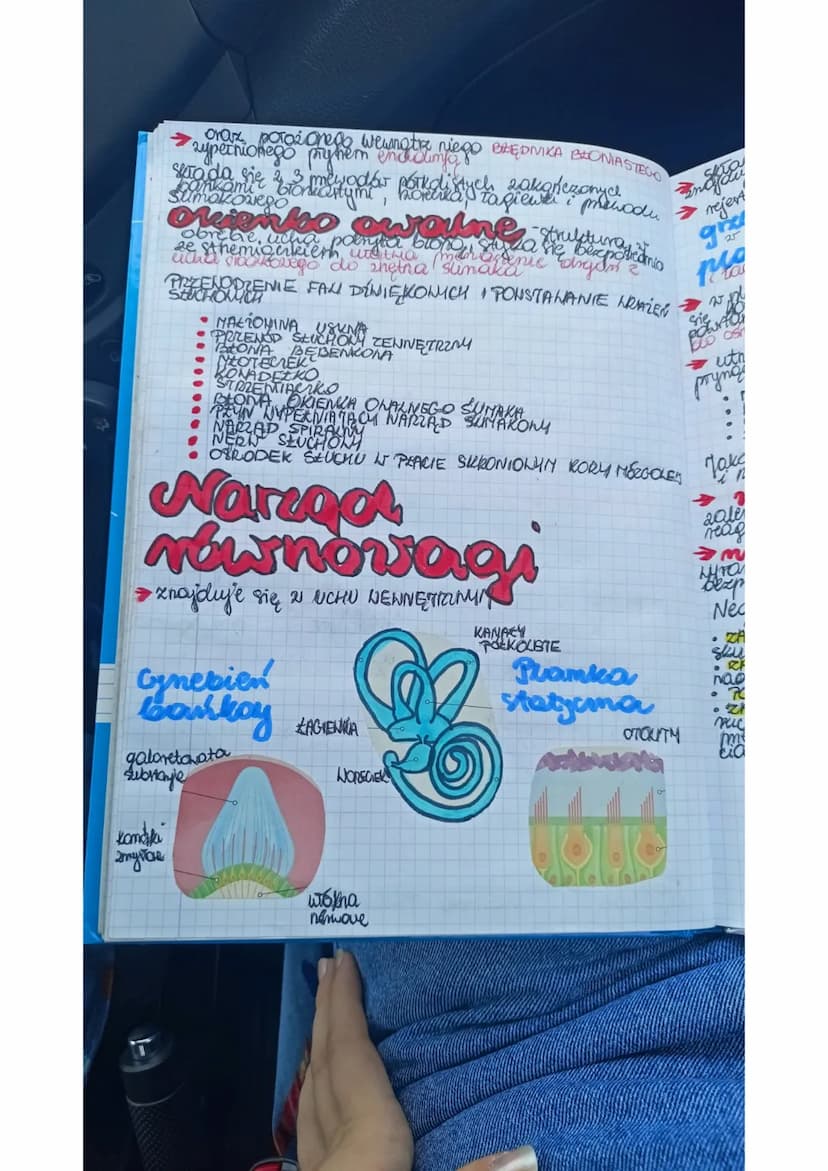 → oraz położonego wewnątrz niego BŁĘDNIKA BŁONIASTEGO
wypełnionego płynem endolimfą
składa się z 3 przewodów półkolistych zakończonych
bańkami błoniastymi, woreczka, łagiewki i przewodu
ślimakowego
okienko owalne - struktura w
obrębie ucha pokryta błoną, styka się bezpośrednio
ze strzemiączkiem, ułatwia przenoszenie drgań z
ucha środkowego do wnętrza ślimaka
PRZEWODZENIE FAL DŹWIĘKOWYCH I POWSTAWANIE WRAŻEŃ
SŁUCHOWYCH
• MAŁŻOWINA USZNA
• PRZEWÓD SŁUCHOWY ZEWNĘTRZNY
• BŁONA BĘBENKOWA
• MŁOTECZEK
• KOWADEŁKO
• STRZEMIĄCZKO
• BŁONA OKIENKA OWALNEGO ŚLIMAKA
• PŁYN WYPEŁNIAJĄCY NARZĄD ŚLIMAKOWY
• NARZĄD SPIRALNY
• NERW SŁUCHOWY
• OŚRODEK SŁUCHU W PŁACIE SKRONIOWYM KORY MÓZGOWEJ
Narząd
równowagi
→ znajduje się w UCHU WEWNĘTRZNYM
KANAŁY
PÓŁKOLISTE
Grzebień
bańkowy
Plamka
statyczna
ŁAGIEWKA
WORECZEK
OTOLITY
galaretowata
substancja
komórki
zmysłowe
włókna
nerwowe